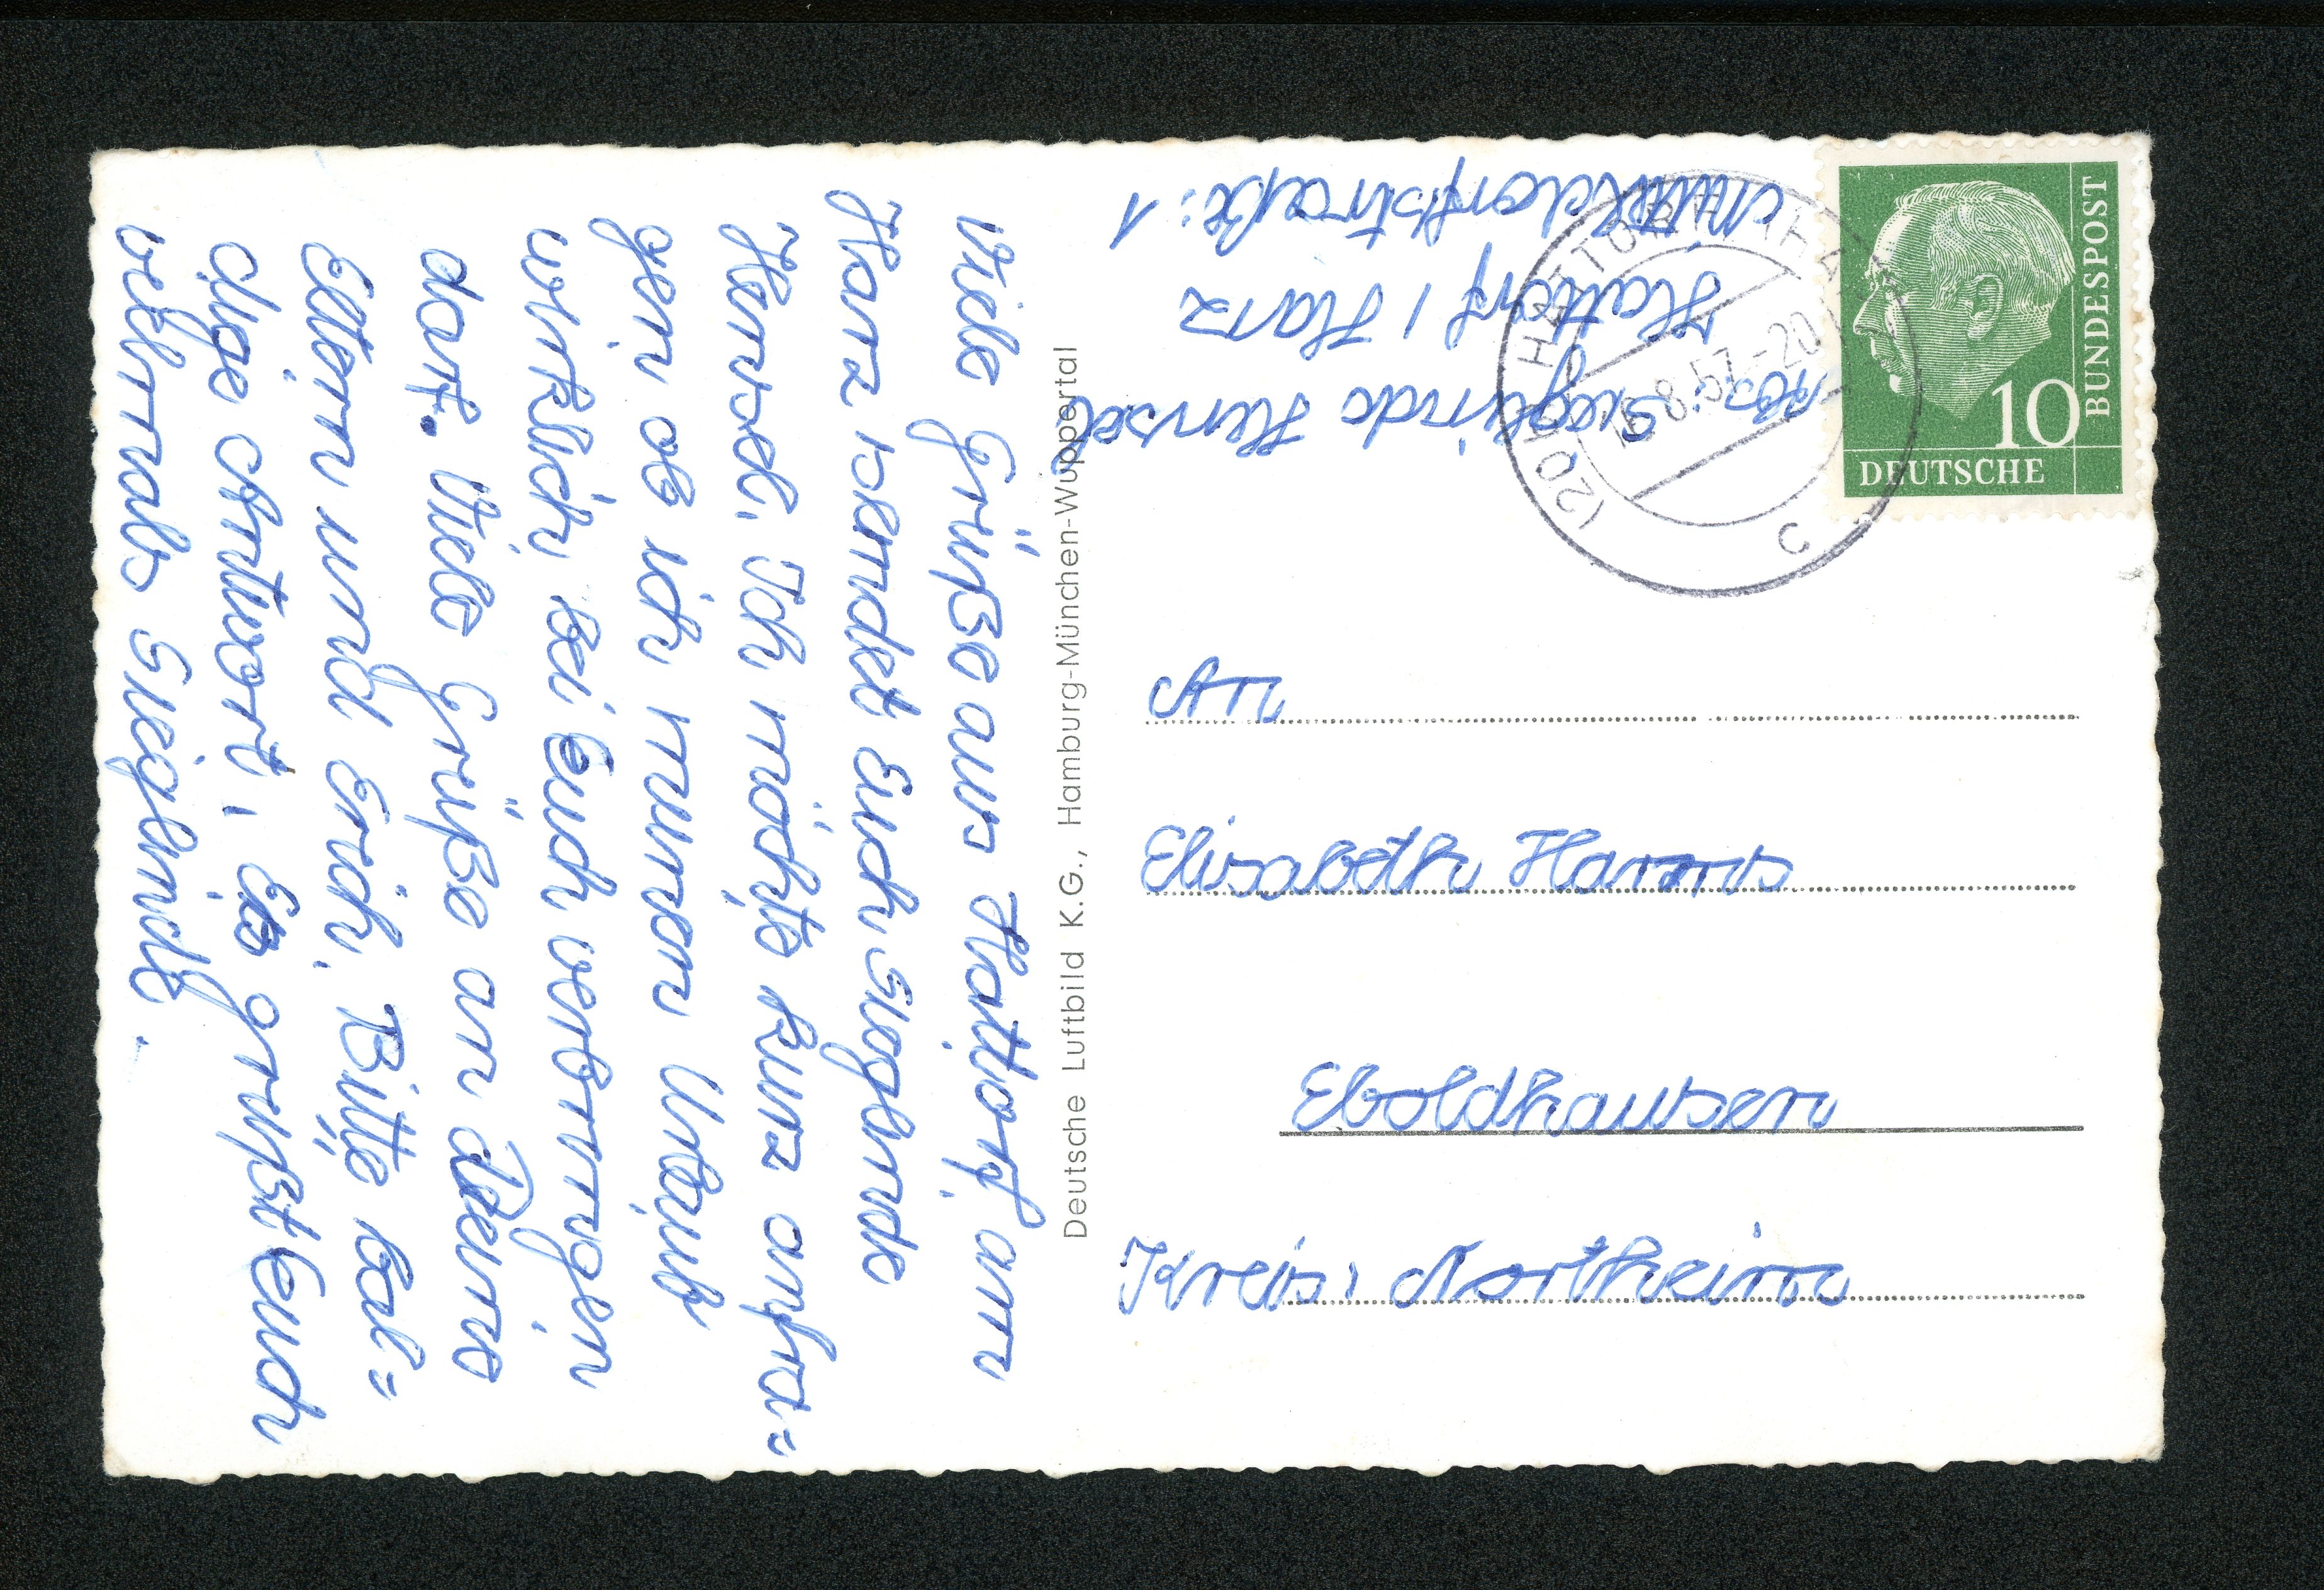 Viele Grüße aus Hattorf am
Harz sendet Euch, Sieglinde
Hensel. Ich möchte kurz anfra=
gen ob ich meinen Urlaub
wirklich, bei Euch verbringen
darf. Viele Grüße an Deine
Eltern und Erich. Bitte bal=
dige Antwort, Es grüßt Euch
vielmals Sieglinde.
Deutsche Luftbild K.G., Hamburg-München-Wuppertal
Abs: Sieglinde Hensel
Hattorf / Harz
Mitteldorfstraße: 1
HATTORF (HARZ)
16.8.57.-20
c
10
DEUTSCHE
BUNDESPOST
An
Elisabeth Harms
Eboldhausen
Kreis: Northeim